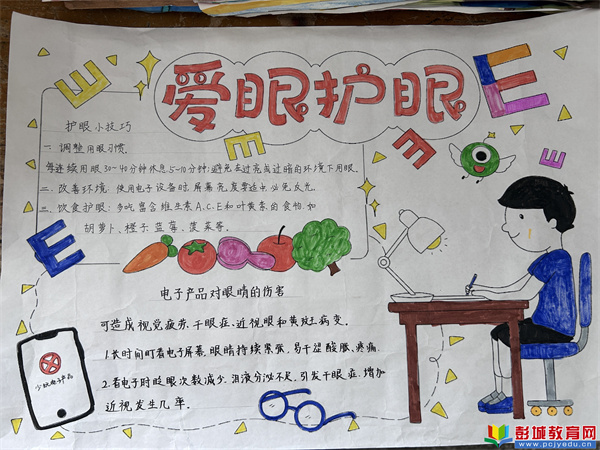 爱眼护眼
护眼小技巧
一 调整用眼习惯.
每连续用眼30-40分钟休息5-10分钟;避免在过亮或过暗的环境下用眼.
二.改善环境:使用电子设备时.屏幕亮度要适中.避免反光.
三.饮食护眼:多吃富含维生素A.C.E和叶黄素的食物.如
胡萝卜.橙子.蓝莓.菠菜等.
电子产品对眼睛的伤害
可造成视觉疲劳.干眼症、近视眼和黄斑病变.
1.长时间盯着电子屏幕.眼睛持续紧张,易干涩酸胀、疼痛.
2.看电子时眨眼次数减少.泪液分泌不足,引发干眼症.增加
近视发生几率.
少玩电子产品
E
E
E
E
E
E
彭城教育网
www.pcjyedu.cn